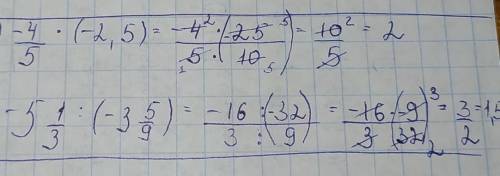 ) -4/5 · (-2,5) = -4²/₁5 · (-25⁵/10₅) = 10²/5 = 2
-5 1/3 : (-3 5/9) = -16/3 : (-32/9) = -16/3 · (-9/32₂)³ = 3/2 = 1,5